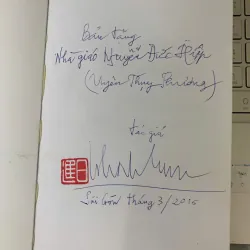 Bản tặng
Nhà giáo Nguyễn Đức Hiệp
(Uyên Thụy Phương)
tác giả
Sài Gòn tháng 3/2015